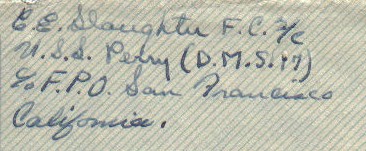 E.E. Slaughter F.C. 2/c
U.S.S. Perry (D.M.S. 17)
c/o F.P.O. San Francisco
California.